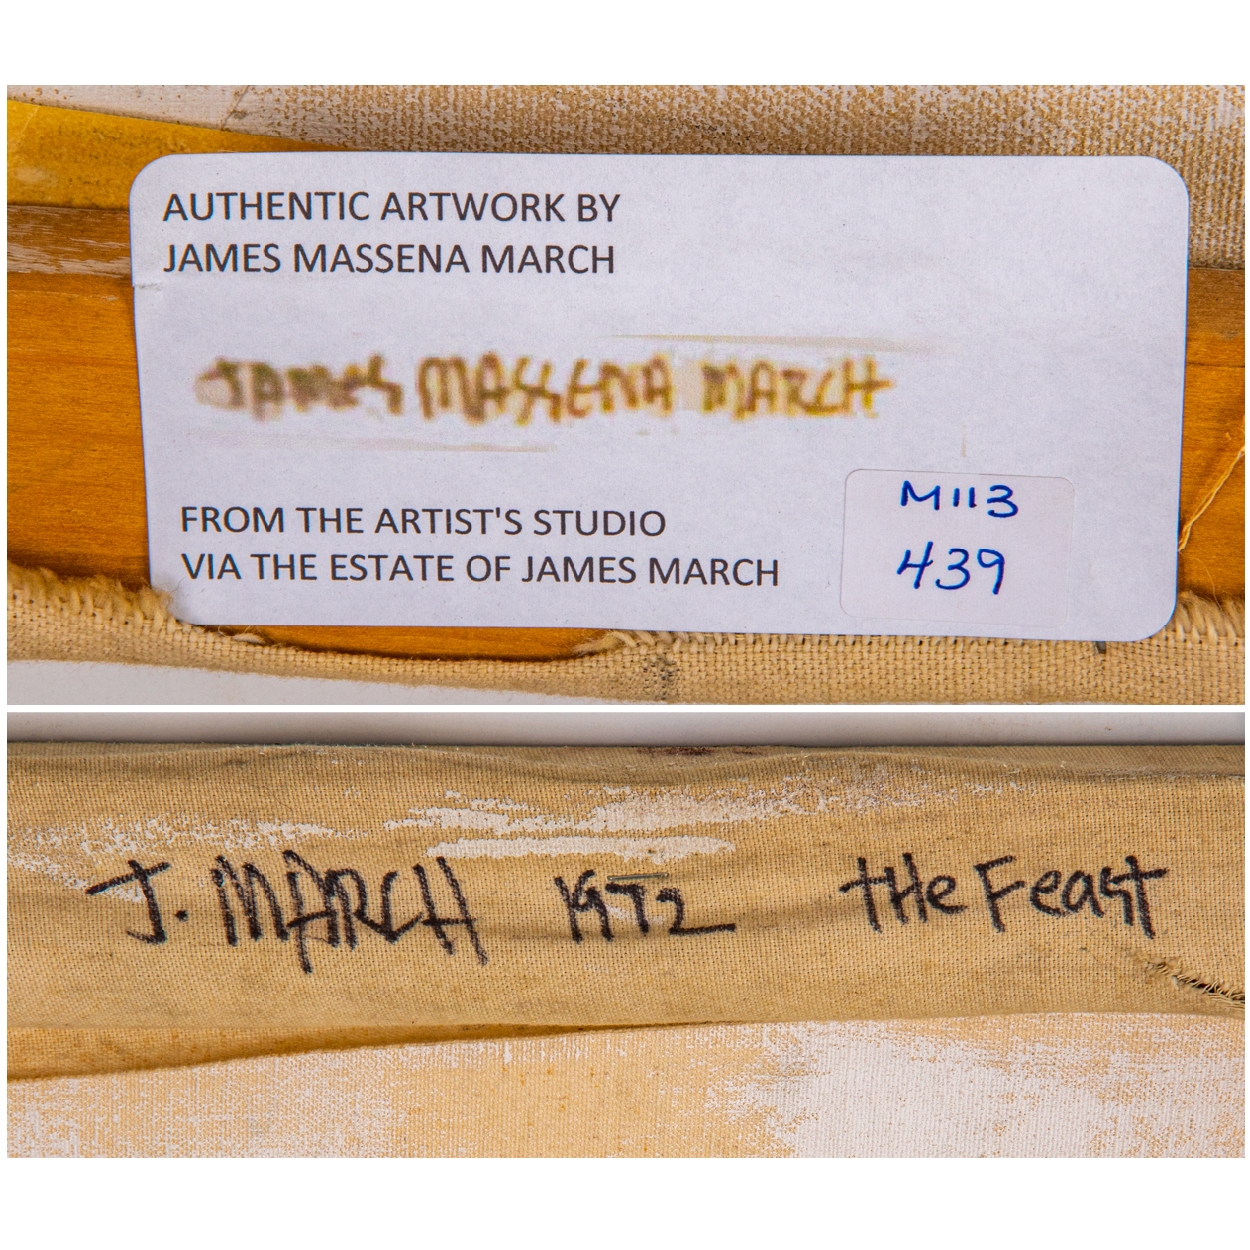 AUTHENTIC ARTWORK BY
JAMES MASSENA MARCH
JAMES MASSENA MARCH
FROM THE ARTIST'S STUDIO
VIA THE ESTATE OF JAMES MARCH
M113
439
J. MARCH 1972 the Feast